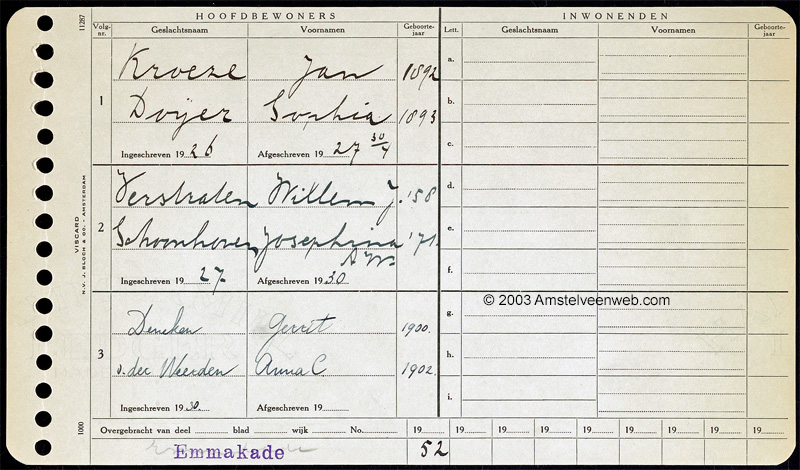 HOOFDBEWONERS INWONENDEN
11287
Volg-nr. Geslachtsnaam Voornamen Geboorte-jaar Lett. Geslachtsnaam Voornamen Geboorte-jaar
1
Kroeze Jan 1892
Doijer Sophia 1893
Ingeschreven 1926 Afgeschreven 1927 30/4
2
Verstraten Willem J. '58
Schoonhoven Josephina '71.
A.W.
Ingeschreven 1927 Afgeschreven 1930
3
Deneken Gerrit 1900.
v. der Weerden Anna C 1902.
Ingeschreven 1930. Afgeschreven 19
a.
b.
c.
d.
e.
f.
© 2003 Amstelveenweb.com
g.
h.
i.
VISCARD
N.V. J. BLOCH & CO. - AMSTERDAM
1000
Overgebracht van deel blad wijk No. 19 19 19 19 19 19 19 19 19
Emmakade 52